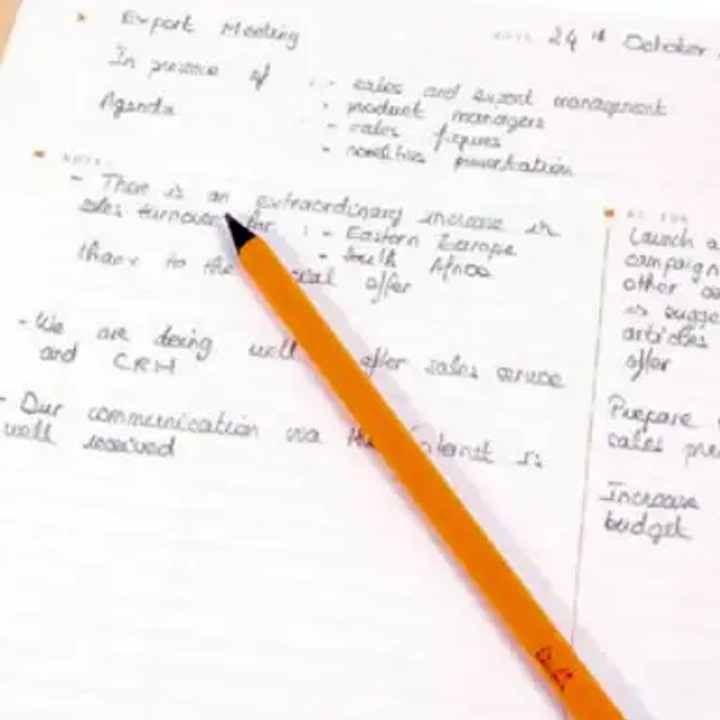 Export Meeting
24th October
In presence of
- sales and export management
- product managers
Agenda
- sales figures
- novelties presentation
NOTES
- There is an extraordinary increase in
sales turnover for : - Eastern Europe
- South Africa
thanx to the offer
- We are doing well after sales service
and CRM
- Our communication via the internet is
well received
TO DO
Launch a
campaign
other
=> sugge
articles
offer
Prepare
sales pre
Increase
budget